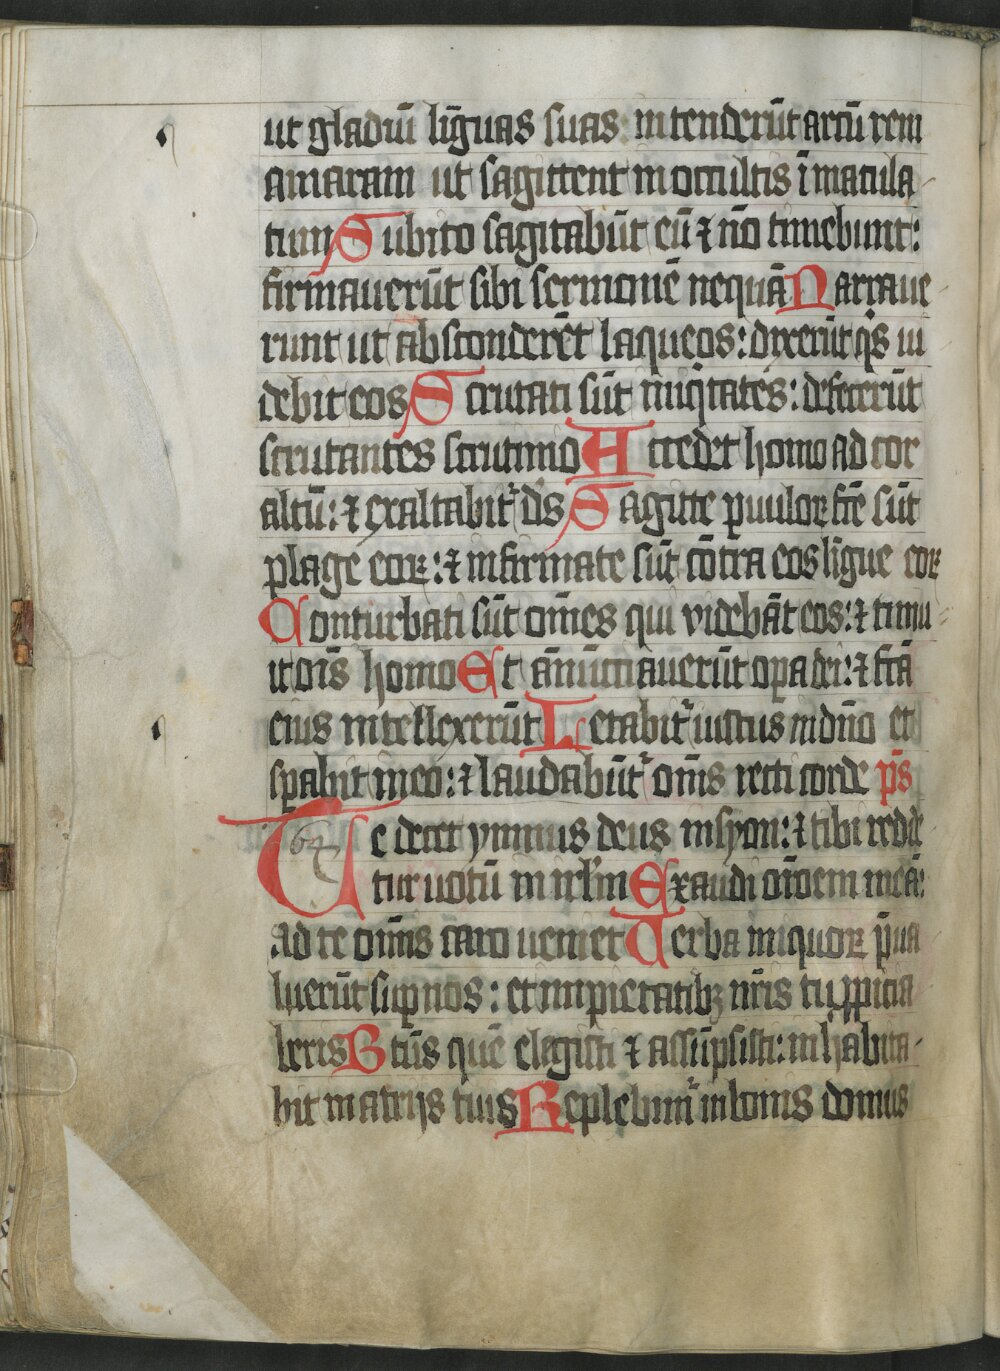 ut gladiū līguas suas intenderūt arcū rem
amaram ut sagittent in occultis īmacula
tum Subito sagitabūt eū ⁊ nō timebunt:
firmauerūt sibi sermonē nequā Narraue
runt ut absconderēt laqueos: dixerūt qͥs ui
debit eos Scrutati sūt iniqͥtates: defecerūt
scrutantes scrutinio Accedet homo ad cor
altū: ⁊ exaltabit᷑ d̄s Sagitte puulor̄ fc̄e sūt
plage eoꝝ: ⁊ infirmate sūt cōtra eos līgue eoꝝ
Conturbati sūt om̄es qui videbāt eos: ⁊ timu
it oīs homo Et ānūctiauerūt oꝑa dei: ⁊ fc̄a
eius intellexerūt Letabit᷑ iustus in dn̄o et
sꝑabit in eo: ⁊ laudabūt᷑ om̄s recti corde ps̄
64
Te decet ymnus deus in syon: ⁊ tibi redde
tur uotū in irl̄m Exaudi or̄oem meā:
ad te om̄is caro ueniet Verba iniquoꝝ p̄ua
luerūt suꝑ nos: et impietatibꝫ nr̄is tu ꝓpicia
beris Bt̄us quē elegisti ⁊ assūpsisti: inhabita
bit in atrijs tuis Replebim᷑ in bonis domus